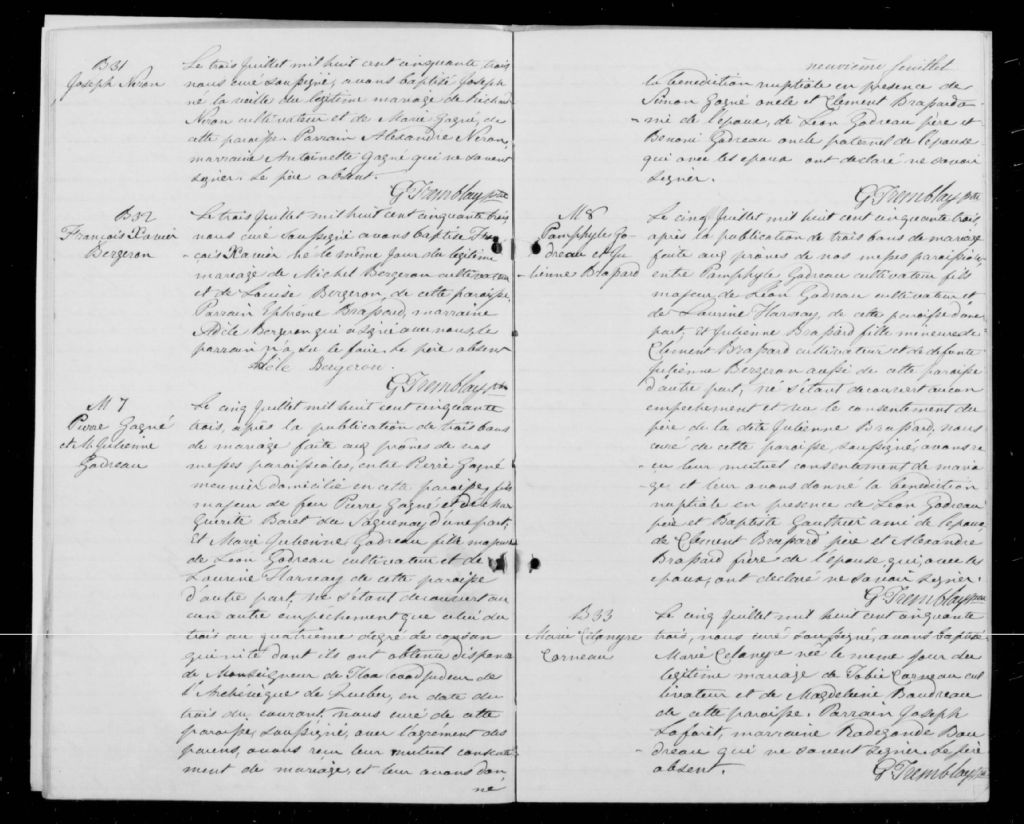 B 31
Joseph Neron
Le trois Juillet mil huit cent cinquante trois
nous curé soussigné, avons baptisé Joseph
né la veille du légitime mariage de
Neron cultivateur et de Marie Gagné, de
cette paroisse. Parrain Alexandre Neron,
marraine Antoinette Gagné qui ne savent
signer. Le père absent.
G Tremblay ptre
B 32
François Xavier
Bergeron
Le trois Juillet mil huit cent cinquante trois
nous curé soussigné avons baptisé Fran
çois Xavier né le même jour du légitime
mariage de Michel Bergeron cultivateur
et de Louise Bergeron, de cette paroisse,
Parrain Ephreme Brassard, marraine
Adèle Bergeron qui a signé avec nous, le
parrain n'a su le faire. Le père absent
Adèle Bergeron.
G Tremblay ptre
M 7
Pierre Gagné
et M. Julienne
Godreau
Le cinq Juillet mil huit cent cinquante
trois, après la publication de trois bans
de mariage faite aux prônes de nos
messes paroissiales, entre Pierre Gagné
meunier domicilié en cette paroisse, fils
majeur de feu Pierre Gagné et de Mar
guerite Boret du Saguenay d'une part,
Et Marie Julienne Godreau fille majeure
de Léon Godreau cultivateur et de
Laurine Harvay de cette paroisse
d'autre part, ne s'étant decouvert au
cun autre empêchement que celui du
trois au quatrième degré de consan
guinité dont ils ont obtenu dispense
de Monseigneur de Tloa coadjudeur de
l'Archévêque de Quebec, en date du
trois du courant, nous curé de cette
paroisse, soussigné, avec l'agrement des
parens, avons recu leur mutuel consente
ment de mariage, et leur avons don
né
neuvième feuillet
la bénédiction nuptiale en presence de
Simon Gagné oncle et Clement Brassard a-
mi de l'époux, de Léon Godreau père et
Benoni Godreau oncle paternel de l'épouse
qui avec les epoux ont declaré ne savoir
signer.
G Tremblay ptre
M 8
Pamphyle Go-
dreau et Ju-
lienne Brassard
Le cinq Juillet mil huit cent cinquante trois
après la publication de trois bans de mariage
faite aux prônes de nos messes paroissiales
entre Pamphyle Godreau cultivateur fils
majeur de Léon Godreau cultivateur et
de Laurine Harvay, de cette paroisse d'une
part, Et Julienne Brassard fille mineure de
Clément Brassard cultivateur et de defunte
Julienne Bergeron aussi de cette paroisse
d'autre part, ne s'étant decouvert aucun
empechement et vu le consentement du
père de la dite Julienne Brassard, nous
curé de cette paroisse, soussigné, avons re
cu leur mutuel consentement de maria
ge, et leur avons donné la bénédiction
nuptiale en presence de Léon Godreau
père et Baptiste Gauthier ami de l'époux,
de Clement Brassard père et Alexandre
Brassard frère de l'épouse qui, avec les
epoux, ont declaré ne savoir signer.
G Tremblay ptre
B 33
Marie Celanyre
Corneau
Le cinq Juillet mil huit cent cinquante
trois, nous curé soussigné, avons baptisé
Marie Celanyre née le même jour du
légitime mariage de Tobie Corneau cul
tivateur et de Magdeleine Boudreau
de cette paroisse. Parrain Joseph
Laforêt, marraine Radegonde Bou
dreau qui ne savent signer. Le père
absent.
G Tremblay ptre